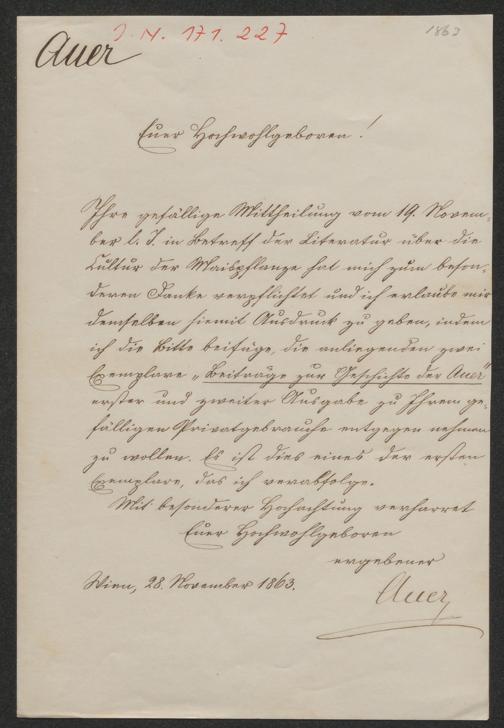 Auer
J. N. 171.227
1863
Euer Hochwohlgeboren!
Ihre gefällige Mittheilung vom 19. Novem-
ber l. J. in Betreff der Literatur über die
Cultur der Maispflanze hat mich zum beson-
deren Danke verpflichtet und ich erlaube mir
demselben hiemit Ausdruck zu geben, indem
ich die Bitte beifüge, die anliegenden zwei
Exemplare „Beiträge zur Geschichte der Auer"
erster und zweiter Ausgabe zu Ihrem ge-
fälligen Privatgebrauche entgegen nehmen
zu wollen. Es ist dies eines der ersten
Exemplare, das ich verabfolge.
Mit besonderer Hochachtung verharret
Euer Hochwohlgeboren
ergebener
Wien, 28. November 1863.
Auer